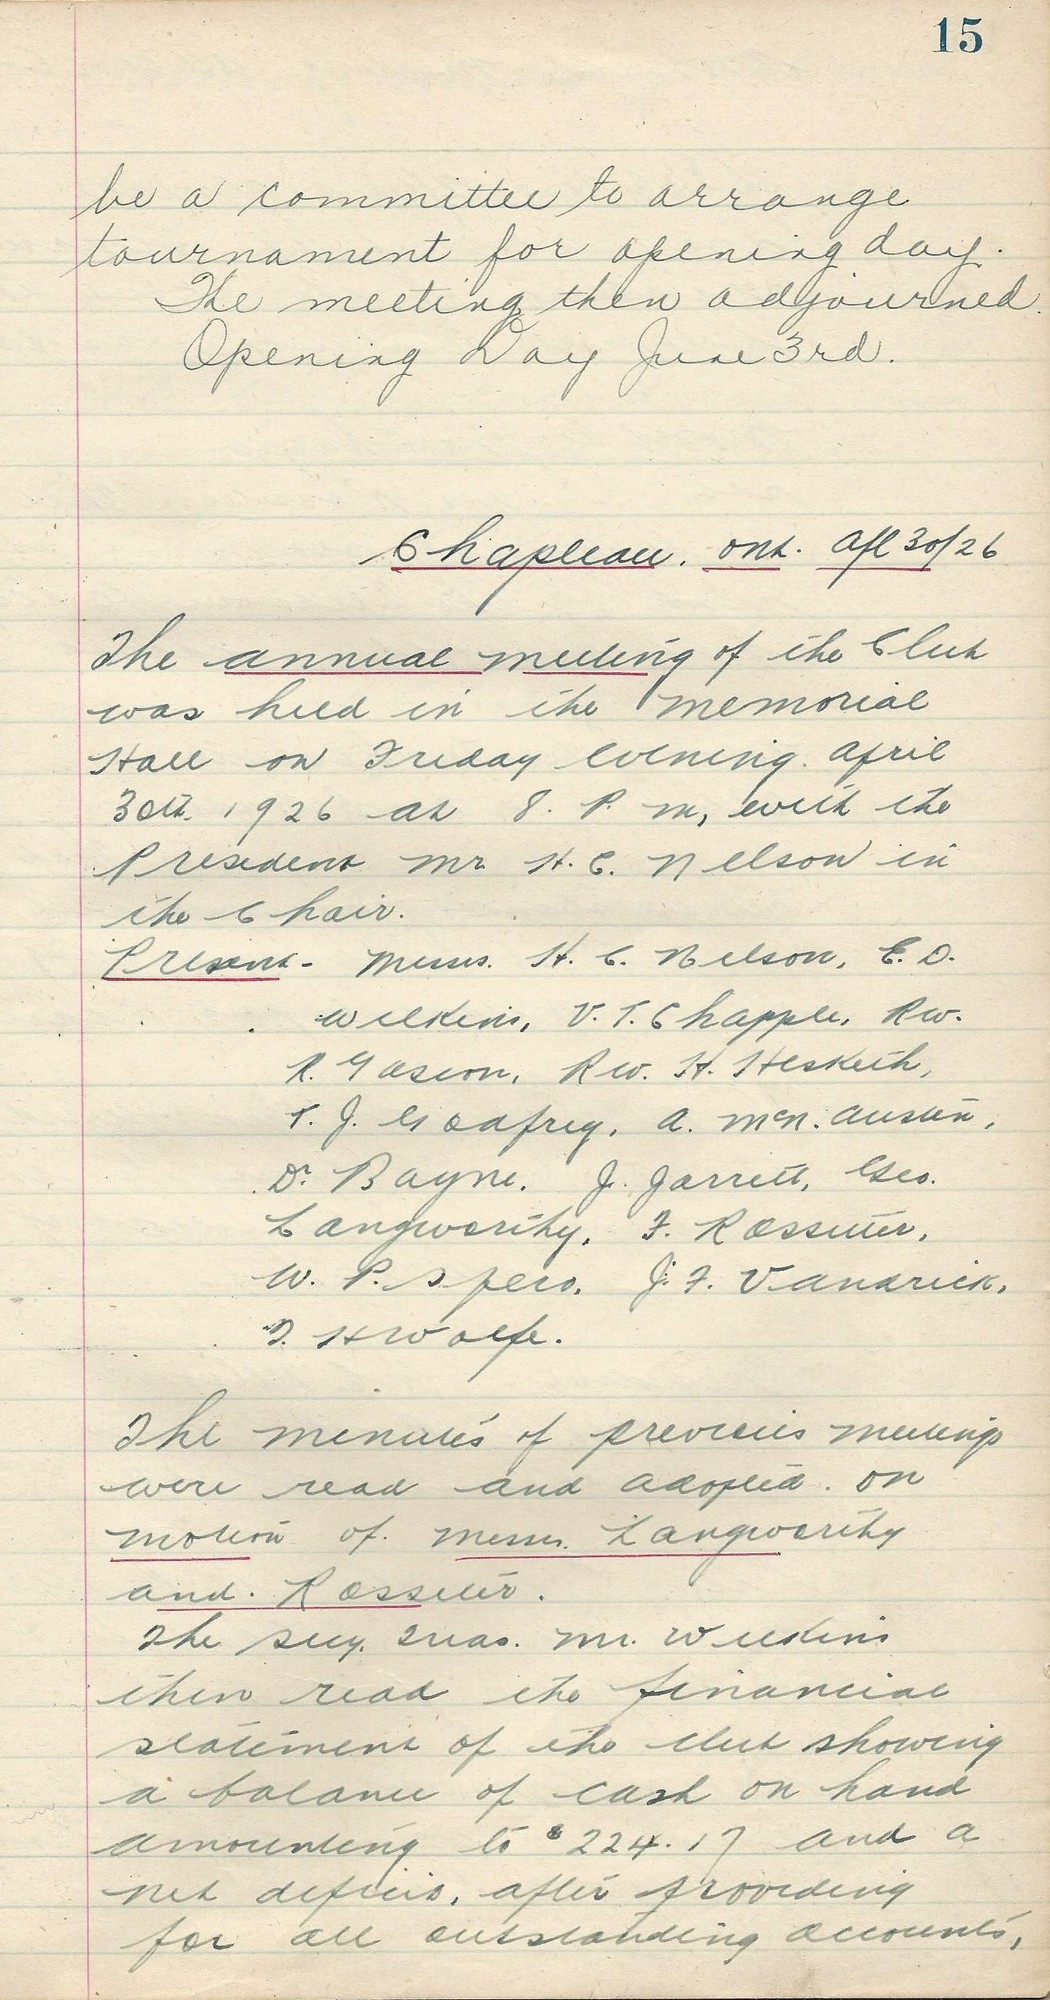 15
be a committee to arrange
tournament for opening day.
The meeting then adjourned.
Opening Day June 3rd.
Chapleau, Ont. Apl 30/26
The annual meeting of the Club
was held in the Memorial
Hall on Friday evening. April
30th. 1926 at 8. P. m, with the
President Mr. H. C. Nelson in
the Chair.
Present- Messrs. H. C. Nelson, E. D.
Wilkins, V. T. Chapple, Rev.
R. Gascon, Rev. H. Hesketh,
T. J. Godfrey, A. McN. Austin,
Dr. Bayne, J. Jarrett, Geo.
Langworthy, F. Rossiter,
W. P. Spero, J. F. Vandrick,
T. H Wolfe.
The minutes of previous meetings
were read and adopted. on
motion of. Messrs. Langworthy
and. Rossiter.
The Secy. Treas. Mr. Wilkins
then read the financial
statement of the club showing
a balance of cash on hand
amounting to $224.17 and a
net deficit, after providing
for all outstanding accounts,